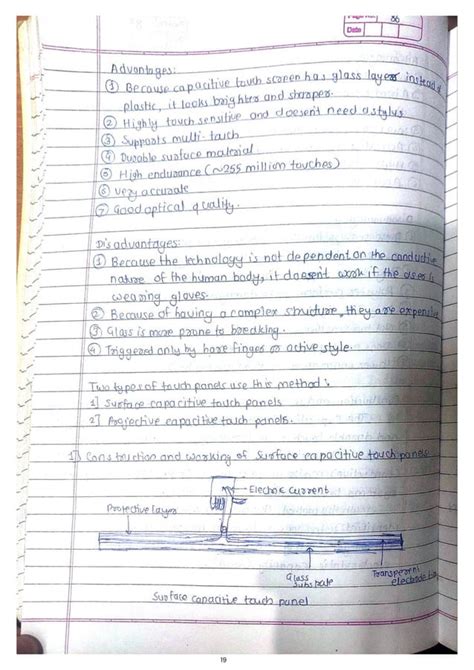 Page No. 86
Date
Advantages:
① Because capacitive touch screen has glass layers instead of
plastic, it looks brighter and sharper.
② Highly touch sensitive and doesent need a stylus
③ Supports multi-touch
④ Durable surface material
⑤ High endurance (~255 million touches)
⑥ very accurate
⑦ Good optical quality.
Disadvantages:
① Because the technology is not dependent on the conductive
nature of the human body, it doesent work if the user is
wearing gloves
② Because of having a complex structure, they are expensive
③ Glass is more prone to breaking.
④ Triggered only by bare finger or active style.
Two types of touch panels use this method:
1] Surface capacitive touch panels
2] Projective capacitive touch panels.
1] Construction and working of Surface capacitive touch panels
Electric Current
Protective Layer
Glass
Substrate
Transperent
electrode
Surface capacitive touch panel
19